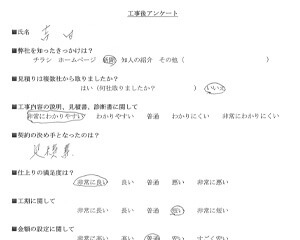 工事後アンケート
■氏名
■弊社を知ったきっかけは？
チラシ ホームページ 近隣 知人の紹介 その他（
■見積りは複数社から取りましたか？
はい（何社取りましたか？ ） いいえ
■工事内容の説明、見積書、診断書に関して
非常にわかりやすい わかりやすい 普通 わかりにくい 非常にわかりにくい
■契約の決め手となったのは？
見積書
■仕上りの満足度は？
非常に良い 良い 普通 悪い 非常に悪い
■工期に関して
非常に長い 長い 普通 短い 非常に短い
■金額の設定に関して
非常に高い 高い 普通 安い すごく安い